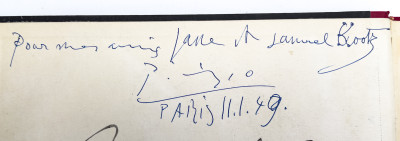 Pour mes amis Jane et Samuel Kootz
Picasso
PARIS 11.1.49.